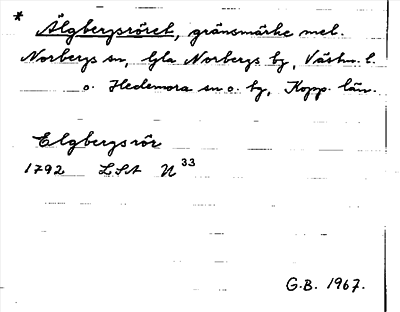 * Älgbergsröret, gränsmärke mel.
Norbergs sn, Gla Norbergs by, Västm. l.
o. Hedemora sn o. by, Kopp. län.
Elgbergsrör
1792 LSA U 33
G.B. 1967.